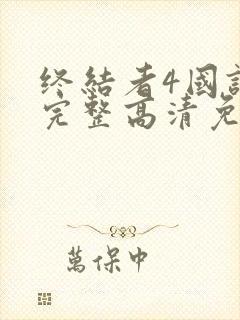 终结者4國
完整高清免
萬保中